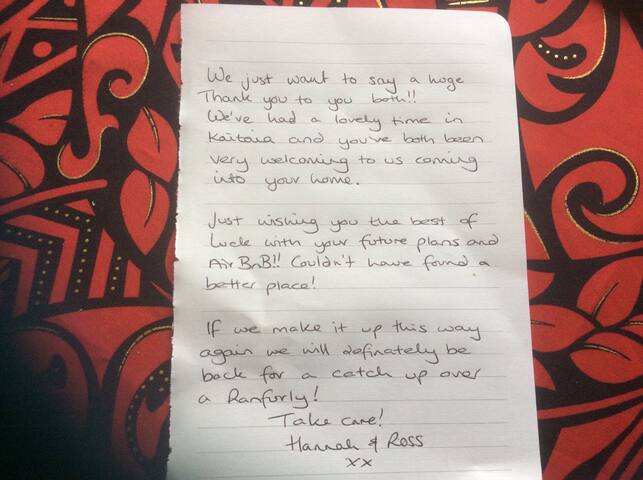 We just want to say a huge
Thank you to you both!!
We've had a lovely time in
Kaitaia and you've both been
very welcoming to us coming
into your home.
Just wishing you the best of
Luck with your future plans and
Air BnB!! Couldn't have found a
better place!
If we make it up this way
again we will definately be
back for a catch up over
a Ranfurly!
Take care!
Hannah & Ross
xx